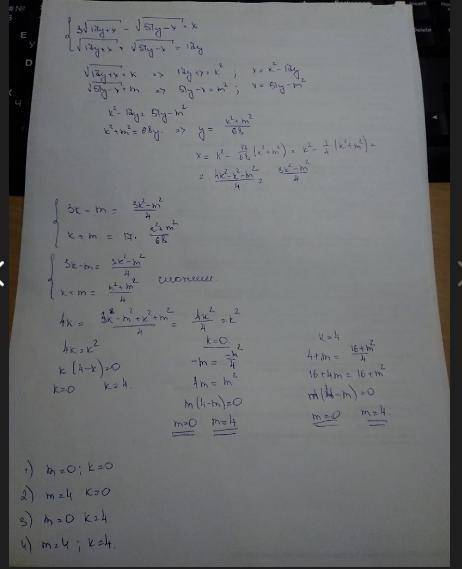 3√17y+x - √51y-x = x
√17y+x + √51y-x = 17y
√17y+x = k => 17y+x = k² ; x = k²-17y
√51y-x = m => 51y-x = m² ; x = 51y-m²
k²-17y = 51y-m²
k²+m² = 68y => y = k²+m²/68
x = k² - 17/68 (k²+m²) = k² - 1/4 (k²+m²) =
= 4k²-k²-m²/4 = 3k²-m²/4
3k - m = 3k²-m²/4
k + m = 17 · k²+m²/68
3k-m = 3k²-m²/4
сложим.
k+m = k²+m²/4
4k = 3k²-m²+k²+m²/4 = 4k²/4 = k²
4k = k²
k(4-k)=0
k=0 k=4
k=0
-m = -m²/4
4m = m²
m(4-m)=0
m=0 m=4
k=4
4+m = 16+m²/4
16+4m = 16+m²
m(4-m)=0
m=0 m=4
1) m=0; k=0
2) m=4 k=0
3) m=0 k=4
4) m=4; k=4.